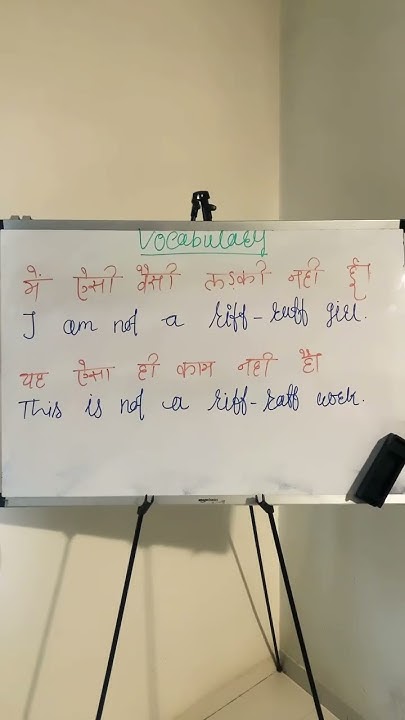 Vocabulary
में ऐसी वैसी लड़की नही हूँ।
I am not a riff-ruff girl.
यह ऐसा ही काम नही है।
This is not a riff-raff work.